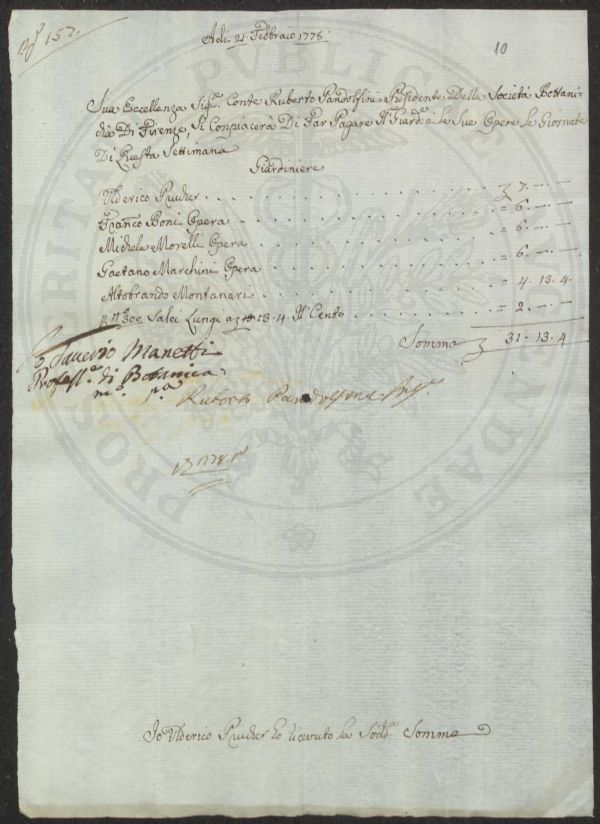 N° 152.
Adi: 21 Febbraio 1778.
10
Sua Eccellenza Sig.e Conte Ruberto Pandolfini Presidente Della Società Bottani-
cha Di Firenze Si Conpiacerà Di Far Pagare Il Giard.e e Le Sue Opere Le Giornate
Di Questa Settimana
Giardiniere
Ulderico Prucher . . . . . . . . . . 7. — —
Franco Boni Opera . . . . . . . . . . = 6. — —
Michele Morelli Opera . . . . . . . . . . = 6. — —
Gaetano Marchini Opera . . . . . . . . . . = 6. — —
Altobrando Montanari . . . . . . . . . . = 4. 13. 4.
Salci Lungi a 13. 4. Il Cento . . . . . . = 2. — —
Somma 31. 13. 4
Saverio Manetti
Profess.e di Botanica
m.o p.a
Ruberto Pandolfini
1778.
Io Ulderico Prucher ho ricevuto la Sodd.a Somma
PUBLICAE
PROSPERITATI AUGENDAE